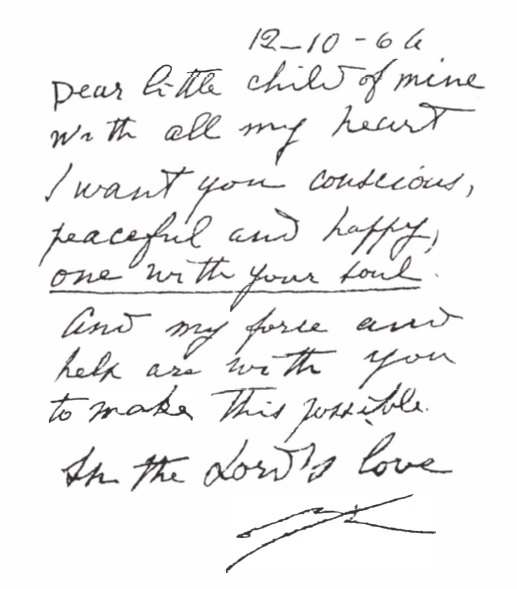 12-10-66
Dear little child of mine
With all my heart
I want you conscious,
peaceful and happy,
one with your soul.
And my force and
help are with you
to make this possible.
In the Lord's love